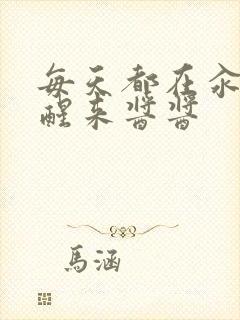 每天都在汆
醒来醬醬
馬涵